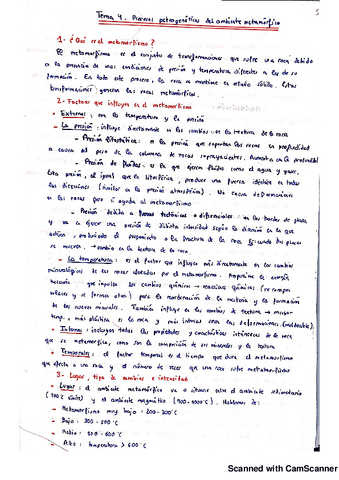 Tema 4. Procesos petrogenéticos del ambiente metamórfico
5
1- ¿Qué es el metamorfismo?
El metamorfismo es el conjunto de transformaciones que sufre una roca debido
a la presencia de unas condiciones de presión y temperatura diferentes a las de su
formación. En todo este proceso, la roca se mantiene en estado sólido. Estas
transformaciones generan las rocas metamórficas.
2- Factores que influyen en el metamorfismo
• Externos: son la temperatura y la presión
- La presión: influye directamente en los cambios en la textura de la roca
- Presión litostática: es la presión que soportan las rocas en profundidad
a causa del peso de la columna de rocas suprayacentes. Aumenta con la profundidad
- Presión de fluidos: es la que ejercen fluidos como el agua y gases.
Esta presión, al igual que la litostática, produce una fuerza idéntica en todas
las direcciones (similar a la presión atmosférica). No causa deformaciones
en las rocas pero sí ayuda al metamorfismo
- Presión debida a fuerzas tectónicas o diferenciales: en los bordes de placa
y va a ejercer una presión de distinta intensidad según la dirección en la que
actúen, produciendo el plegamiento o la fractura de la roca
se mueven → cambio en la textura de la roca.
- La temperatura: es el factor que influye más directamente en los cambios
mineralógicos de las rocas afectadas por el metamorfismo. Proporciona la energía
necesaria que impulsa los cambios químicos → reacciones químicas (se rompen
enlaces y se forman otros) para la reordenación de la materia y la formación
de los nuevos minerales. También influye en los cambios de textura, a mayor
temp. → más plástica es la roca y más intensas son las deformaciones (moldeable).
• Internos: incluyen todas las propiedades y características intrínsecas de la roca
que se metamorfiza, como son la composición de sus minerales y la textura
• Temporales: el factor temporal es el tiempo que dura el metamorfismo
que afecta a una roca y el número de veces que una roca sufre metamorfismo
3- Lugar, tipo de cambios e intensidad
• Lugar: el ambiente metamórfico va a situarse entre el ambiente sedimentario
(200°C límite) y el ambiente magmático (900-1000°C). Hablamos de:
- Metamorfismo muy bajo: 200-300°C
- Bajo: 300-500°C
- Medio: 500-600°C
- Alto: temperatura > 600°C
Scanned with CamScanner